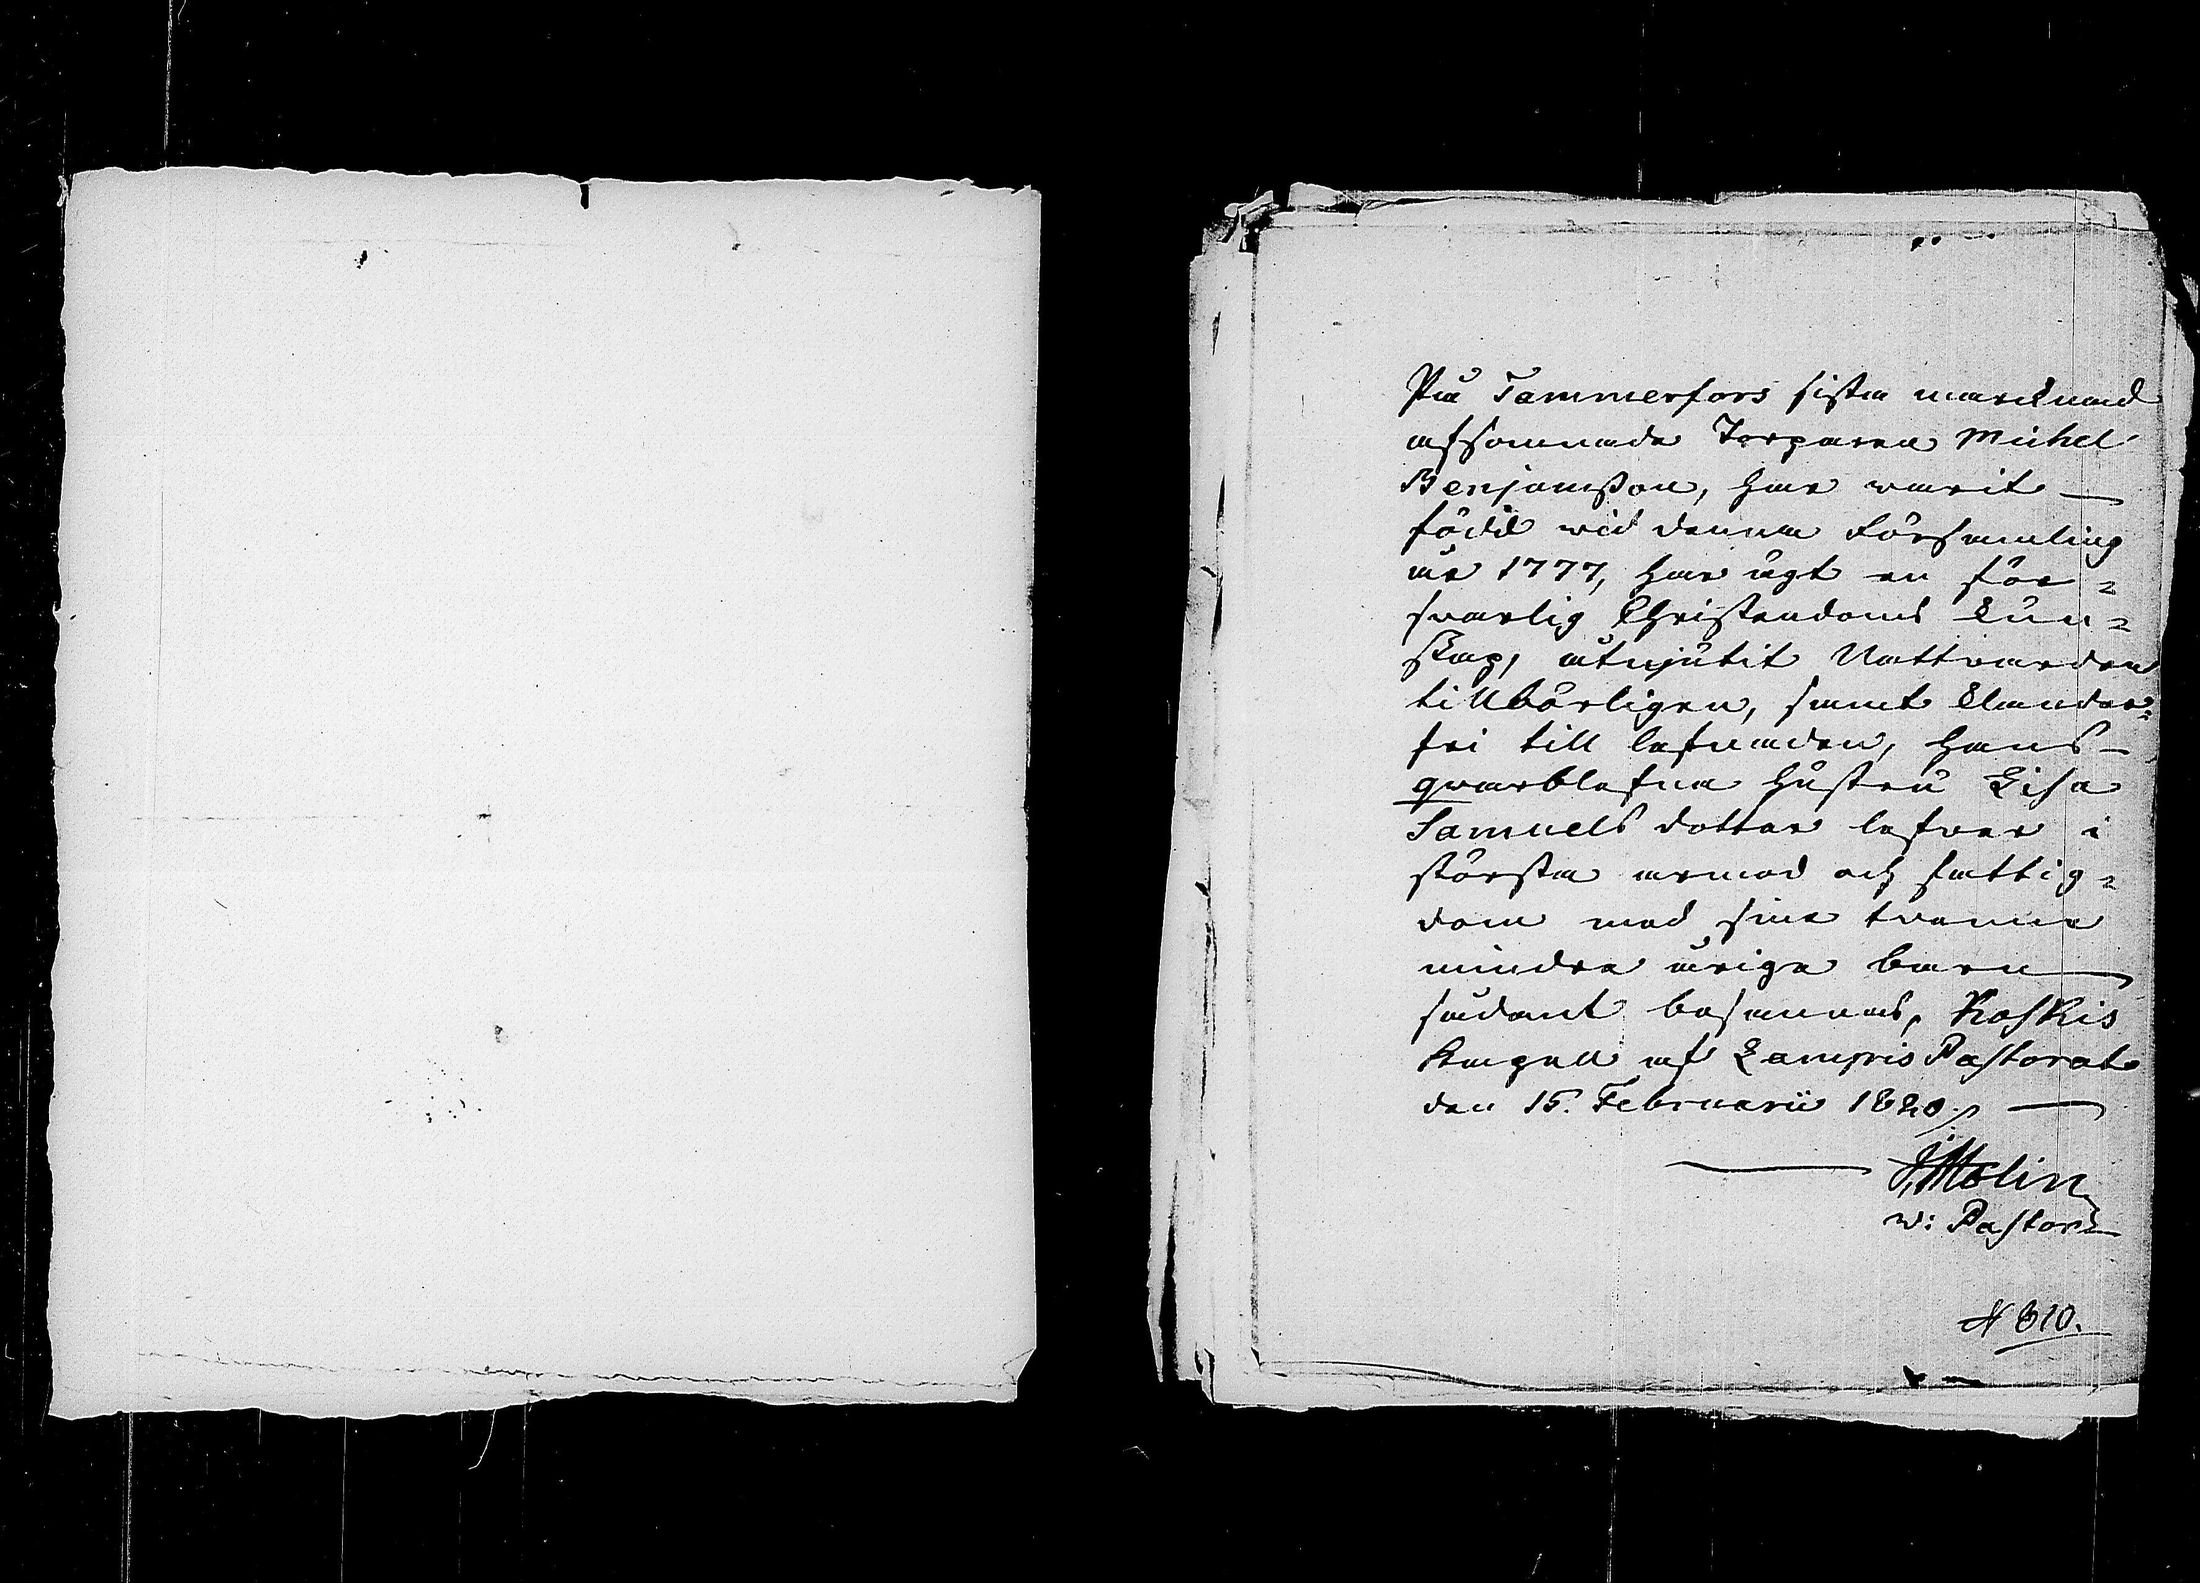 På Tammerfors sista marcknad
afsomnade Torparen Michel
Benjamsson, har warit —
född wid denna Församling
år 1777, har ägt en för=
swarlig Christendoms kun=
skap, åtnjutit Nattvarden
tillbörligen, samt klander=
fri till lefnaden, hans —
qwarblefna hustru Lisa
Samuels dotter lefver i
största armod och fattig=
dom med sina tvenne
mindre åriga barn —
sådant bestyrckes, Koskis
Kapell af Lampis Pastorat
den 15. Februarii 1820. —
J. Molin
w: Pastor.
N 610.